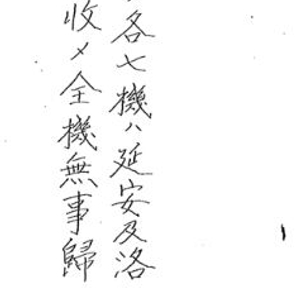 各七機ハ延安及洛
收メ全機無事歸